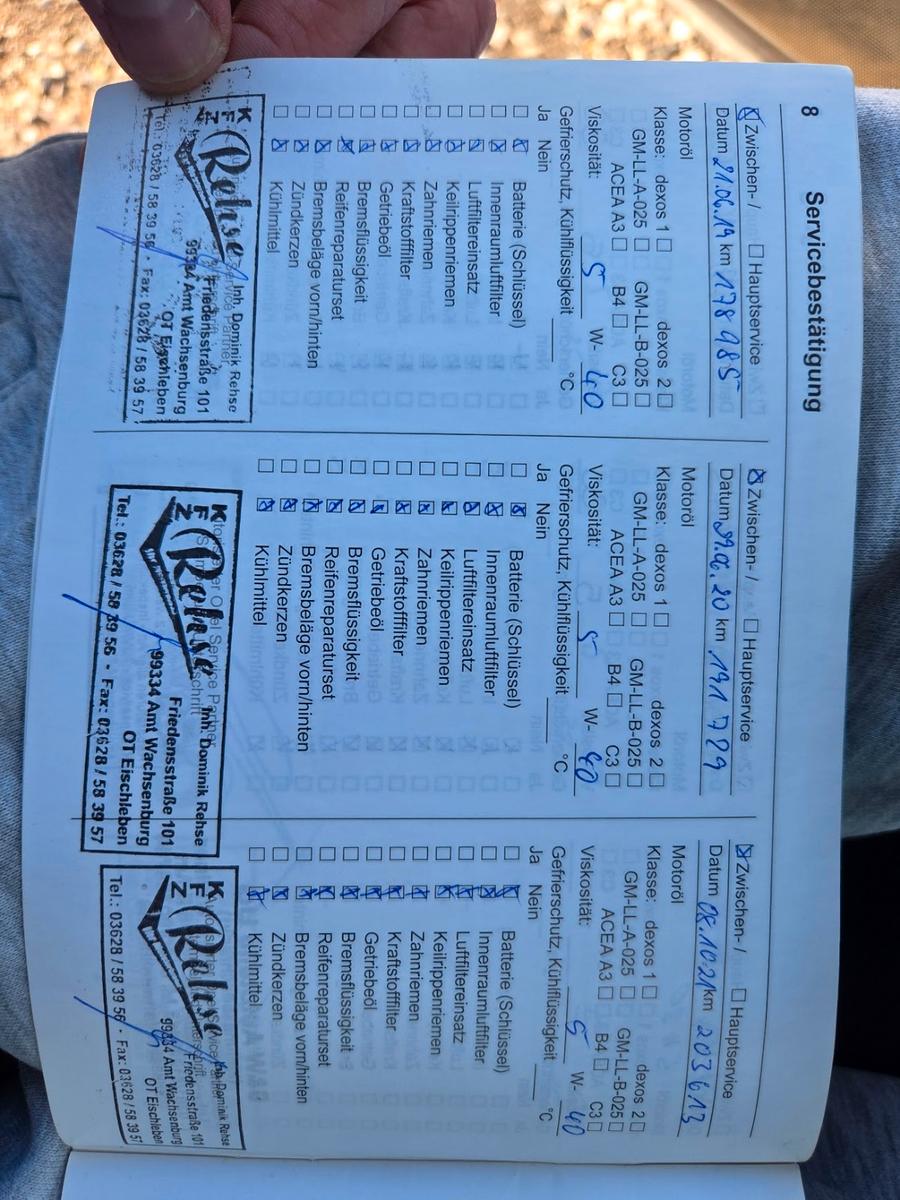 8 Servicebestätigung
☒ Zwischen- / ☐ Hauptservice
Datum 21.06.19 km 178985
Motoröl
Klasse: dexos 1 ☐ dexos 2 ☐
☐ GM-LL-A-025 ☐ GM-LL-B-025 ☐
ACEA A3 ☐ B4 ☐ C3 ☐
Viskosität: 5 W- 40
Gefrierschutz, Kühlflüssigkeit °C
Ja Nein
☐ ☒ Batterie (Schlüssel)
☐ ☒ Innenraumluftfilter
☐ ☒ Luftfiltereinsatz
☐ ☒ Keilrippenriemen
☐ ☒ Zahnriemen
☐ ☒ Kraftstofffilter
☐ ☒ Getriebeöl
☐ ☒ Bremsflüssigkeit
☐ ☒ Reifenreparaturset
☐ ☒ Bremsbeläge vorn/hinten
☐ ☒ Zündkerzen
☐ ☒ Kühlmittel
KFZ Rehse Inh. Dominik Rehse
Friedensstraße 101
99334 Amt Wachsenburg
OT Eischleben
Tel.: 03628 / 58 39 56 · Fax: 03628 / 58 39 57
☒ Zwischen- / ☐ Hauptservice
Datum .06.20 km 191789
Motoröl
Klasse: dexos 1 ☐ dexos 2 ☐
GM-LL-A-025 ☐ GM-LL-B-025 ☐
ACEA A3 ☐ B4 ☐ C3 ☐
Viskosität: 5 W- 40
Gefrierschutz, Kühlflüssigkeit °C
Ja Nein
☐ ☒ Batterie (Schlüssel)
☐ ☒ Innenraumluftfilter
☐ ☒ Luftfiltereinsatz
☐ ☒ Keilrippenriemen
☐ ☒ Zahnriemen
☐ ☒ Kraftstofffilter
☐ ☒ Getriebeöl
☐ ☒ Bremsflüssigkeit
☐ ☒ Reifenreparaturset
☐ ☒ Bremsbeläge vorn/hinten
☐ ☒ Zündkerzen
☐ ☒ Kühlmittel
KFZ Rehse Inh. Dominik Rehse
Friedensstraße 101
99334 Amt Wachsenburg
OT Eischleben
Tel.: 03628 / 58 39 56 · Fax: 03628 / 58 39 57
☒ Zwischen- / ☐ Hauptservice
Datum 08.10.21 km 203613
Motoröl
Klasse: dexos 1 ☐ dexos 2 ☐
GM-LL-A-025 ☐ GM-LL-B-025 ☐
ACEA A3 ☐ B4 ☐ C3 ☐
Viskosität: 5 W- 40
Gefrierschutz, Kühlflüssigkeit °C
Ja Nein
☐ ☒ Batterie (Schlüssel)
☐ ☒ Innenraumluftfilter
☐ ☒ Luftfiltereinsatz
☐ ☒ Keilrippenriemen
☐ ☒ Zahnriemen
☐ ☒ Kraftstofffilter
☐ ☒ Getriebeöl
☐ ☒ Bremsflüssigkeit
☐ ☒ Reifenreparaturset
☐ ☒ Bremsbeläge vorn/hinten
☐ ☒ Zündkerzen
☐ ☒ Kühlmittel
KFZ Rehse Inh. Dominik Rehse
Friedensstraße 101
99334 Amt Wachsenburg
OT Eischleben
Tel.: 03628 / 58 39 56 · Fax: 03628 / 58 39 57